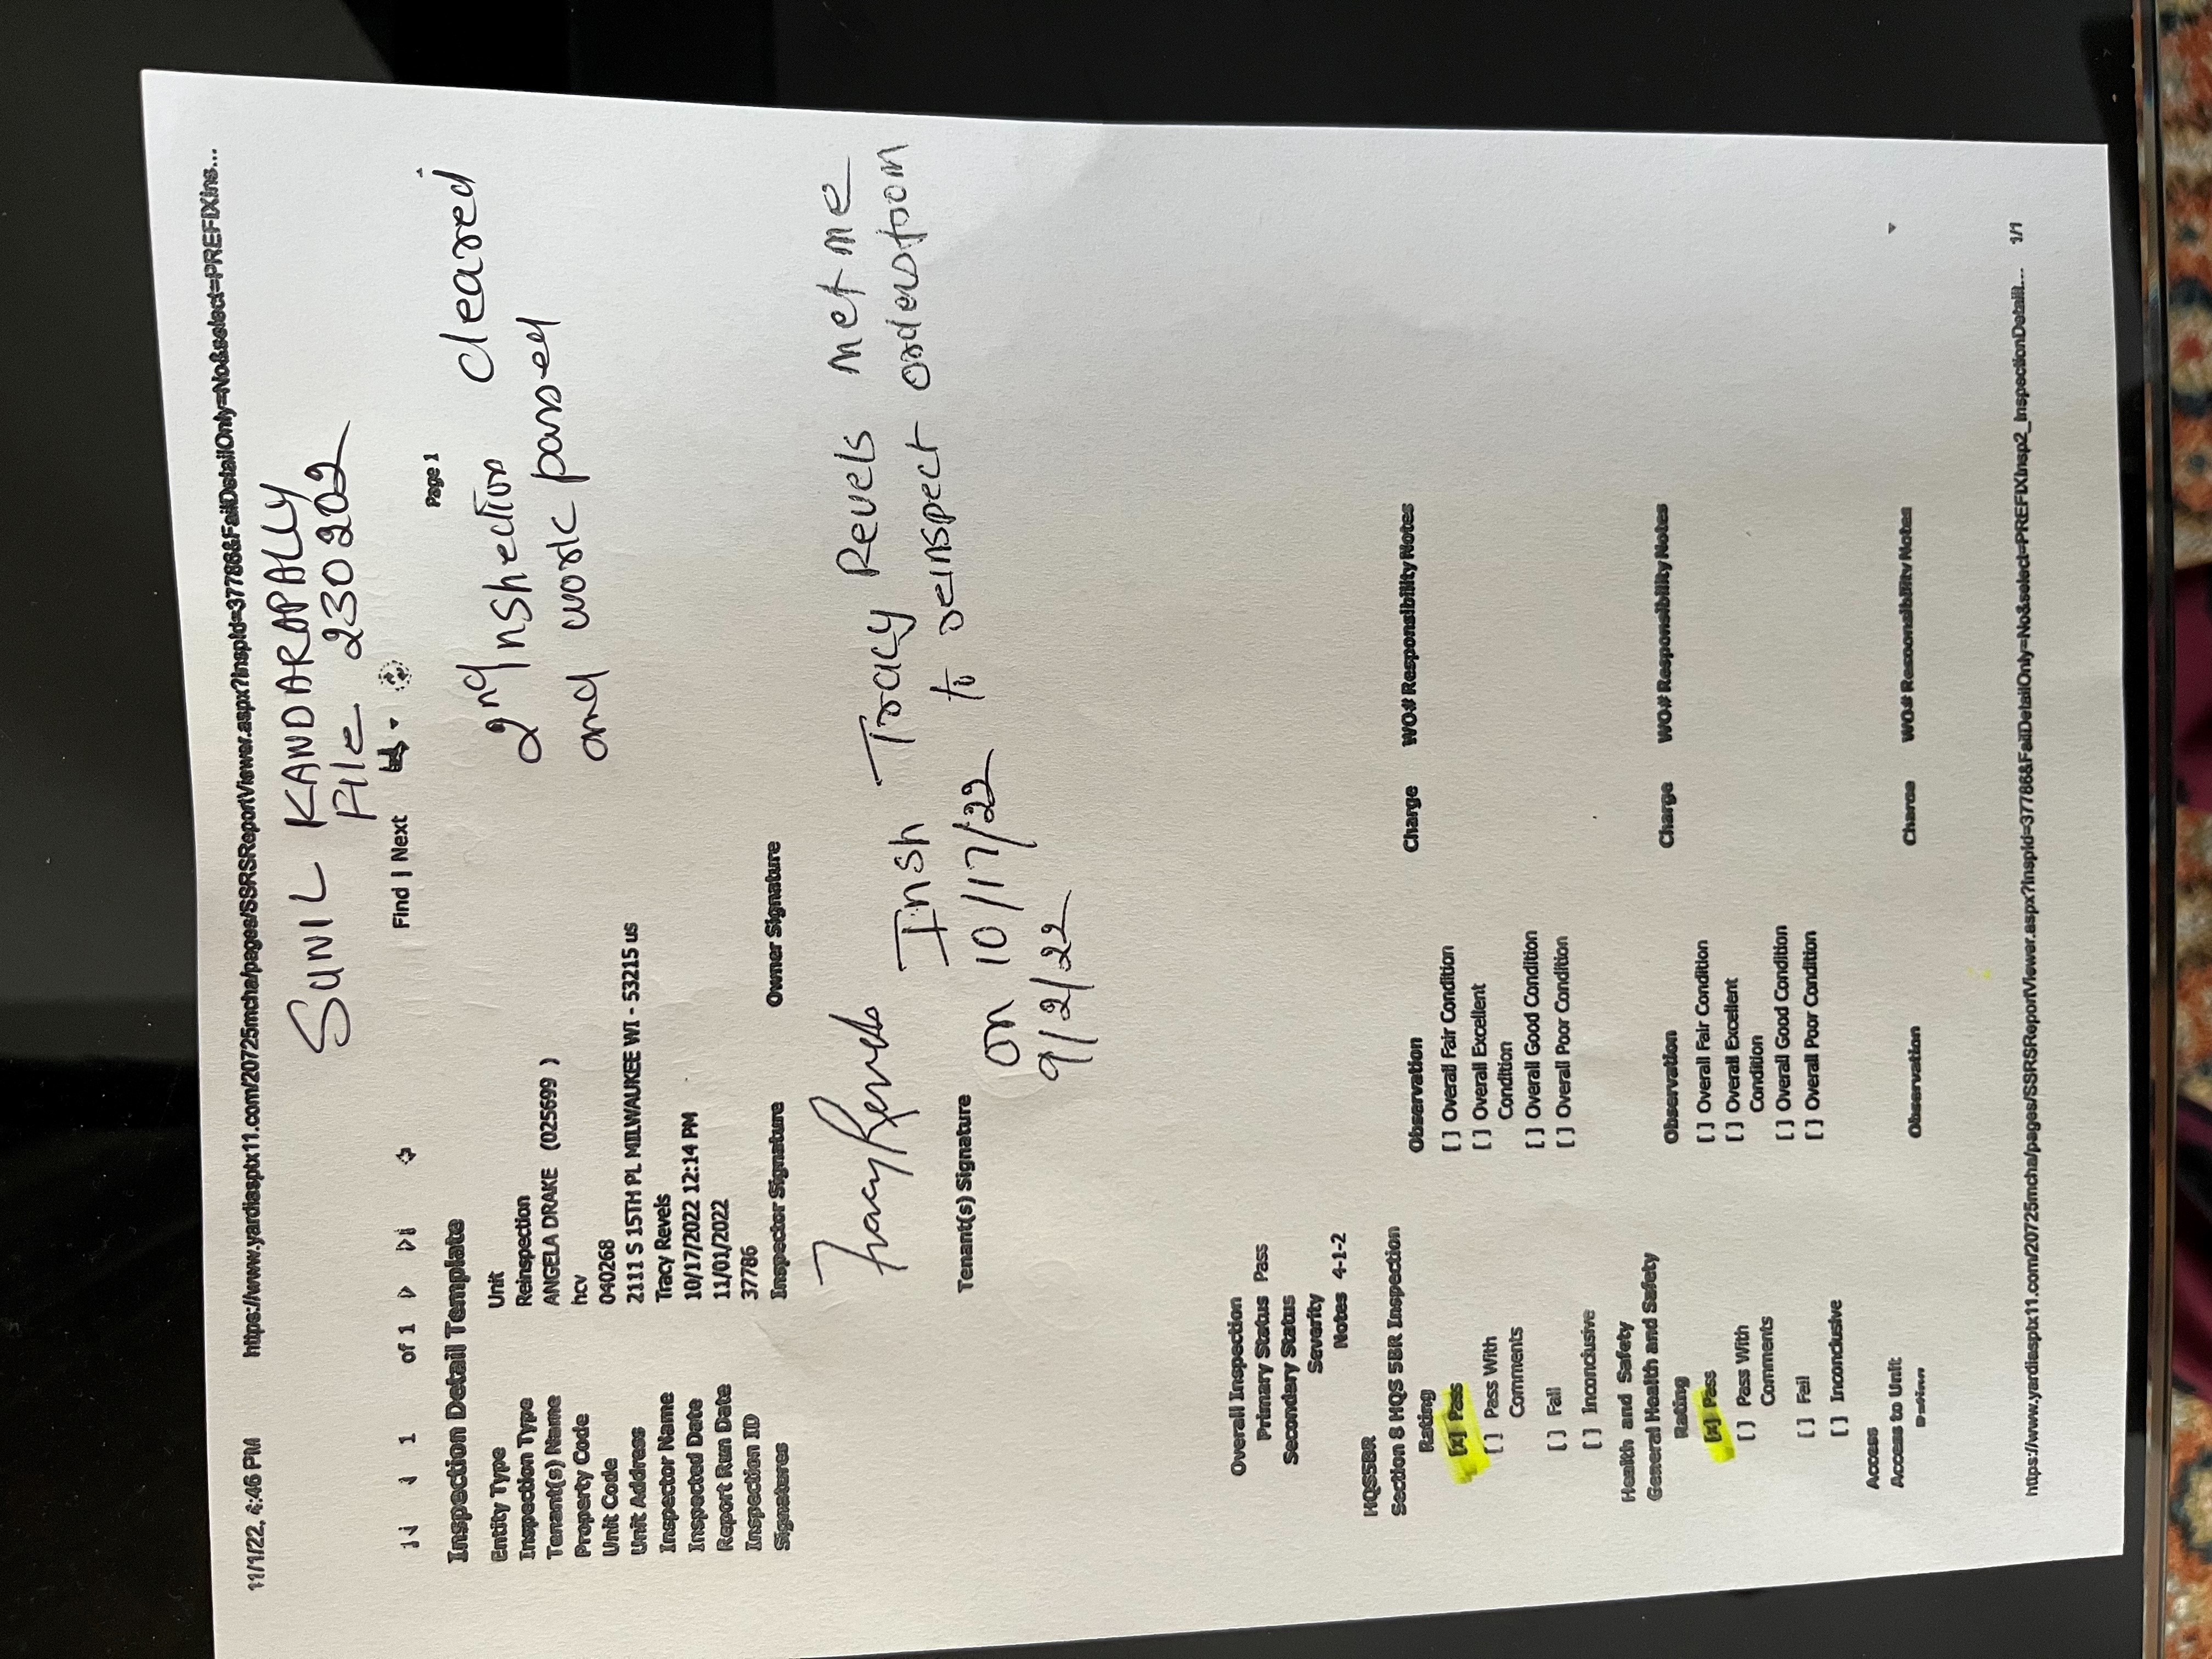 11/1/22, 4:46 PM https://www.yardiasptx11.com/20725mcha/pages/SSRSReportViewer.aspx?InspId=37786&FailDetailOnly=No&select=PREFIXIns...
SUNIL KANDARAPALLY
File 230202
1 of 1 Find | Next
Page 1
Inspection Detail Template
2nd Inshection cleared
and work passed
Entity Type Unit
Inspection Type Reinspection
Tenant(s) Name ANGELA DRAKE (025699 )
Property Code hcv
Unit Code 040268
Unit Address 2111 S 15TH PL MILWAUKEE WI - 53215 us
Inspector Name Tracy Revels
Inspected Date 10/17/2022 12:14 PM
Report Run Date 11/01/2022
Inspection ID 37786
Signatures Inspector Signature Owner Signature
Tracy Revels
Insh Tracy Revels met me
on 10/17/22 to reinspect
9/2/22
Tenant(s) Signature
Overall Inspection
Primary Status Pass
Secondary Status
Severity
Notes 4-1-2
HQS5BR
Section 8 HQS 5BR Inspection
Rating Observation Charge WO# Responsibility Notes
[x] Pass [ ] Overall Fair Condition
[ ] Pass With Comments [ ] Overall Excellent Condition
[ ] Fail [ ] Overall Good Condition
[ ] Inconclusive [ ] Overall Poor Condition
Health and Safety
General Health and Safety
Rating Observation Charge WO# Responsibility Notes
[x] Pass [ ] Overall Fair Condition
[ ] Pass With Comments [ ] Overall Excellent Condition
[ ] Fail [ ] Overall Good Condition
[ ] Inconclusive [ ] Overall Poor Condition
Access
Access to Unit
Rating Observation Charge WO# Responsibility Notes
https://www.yardiasptx11.com/20725mcha/pages/SSRSReportViewer.aspx?InspId=37786&FailDetailOnly=No&select=PREFIXInsp2_InspectionDetail... 1/1